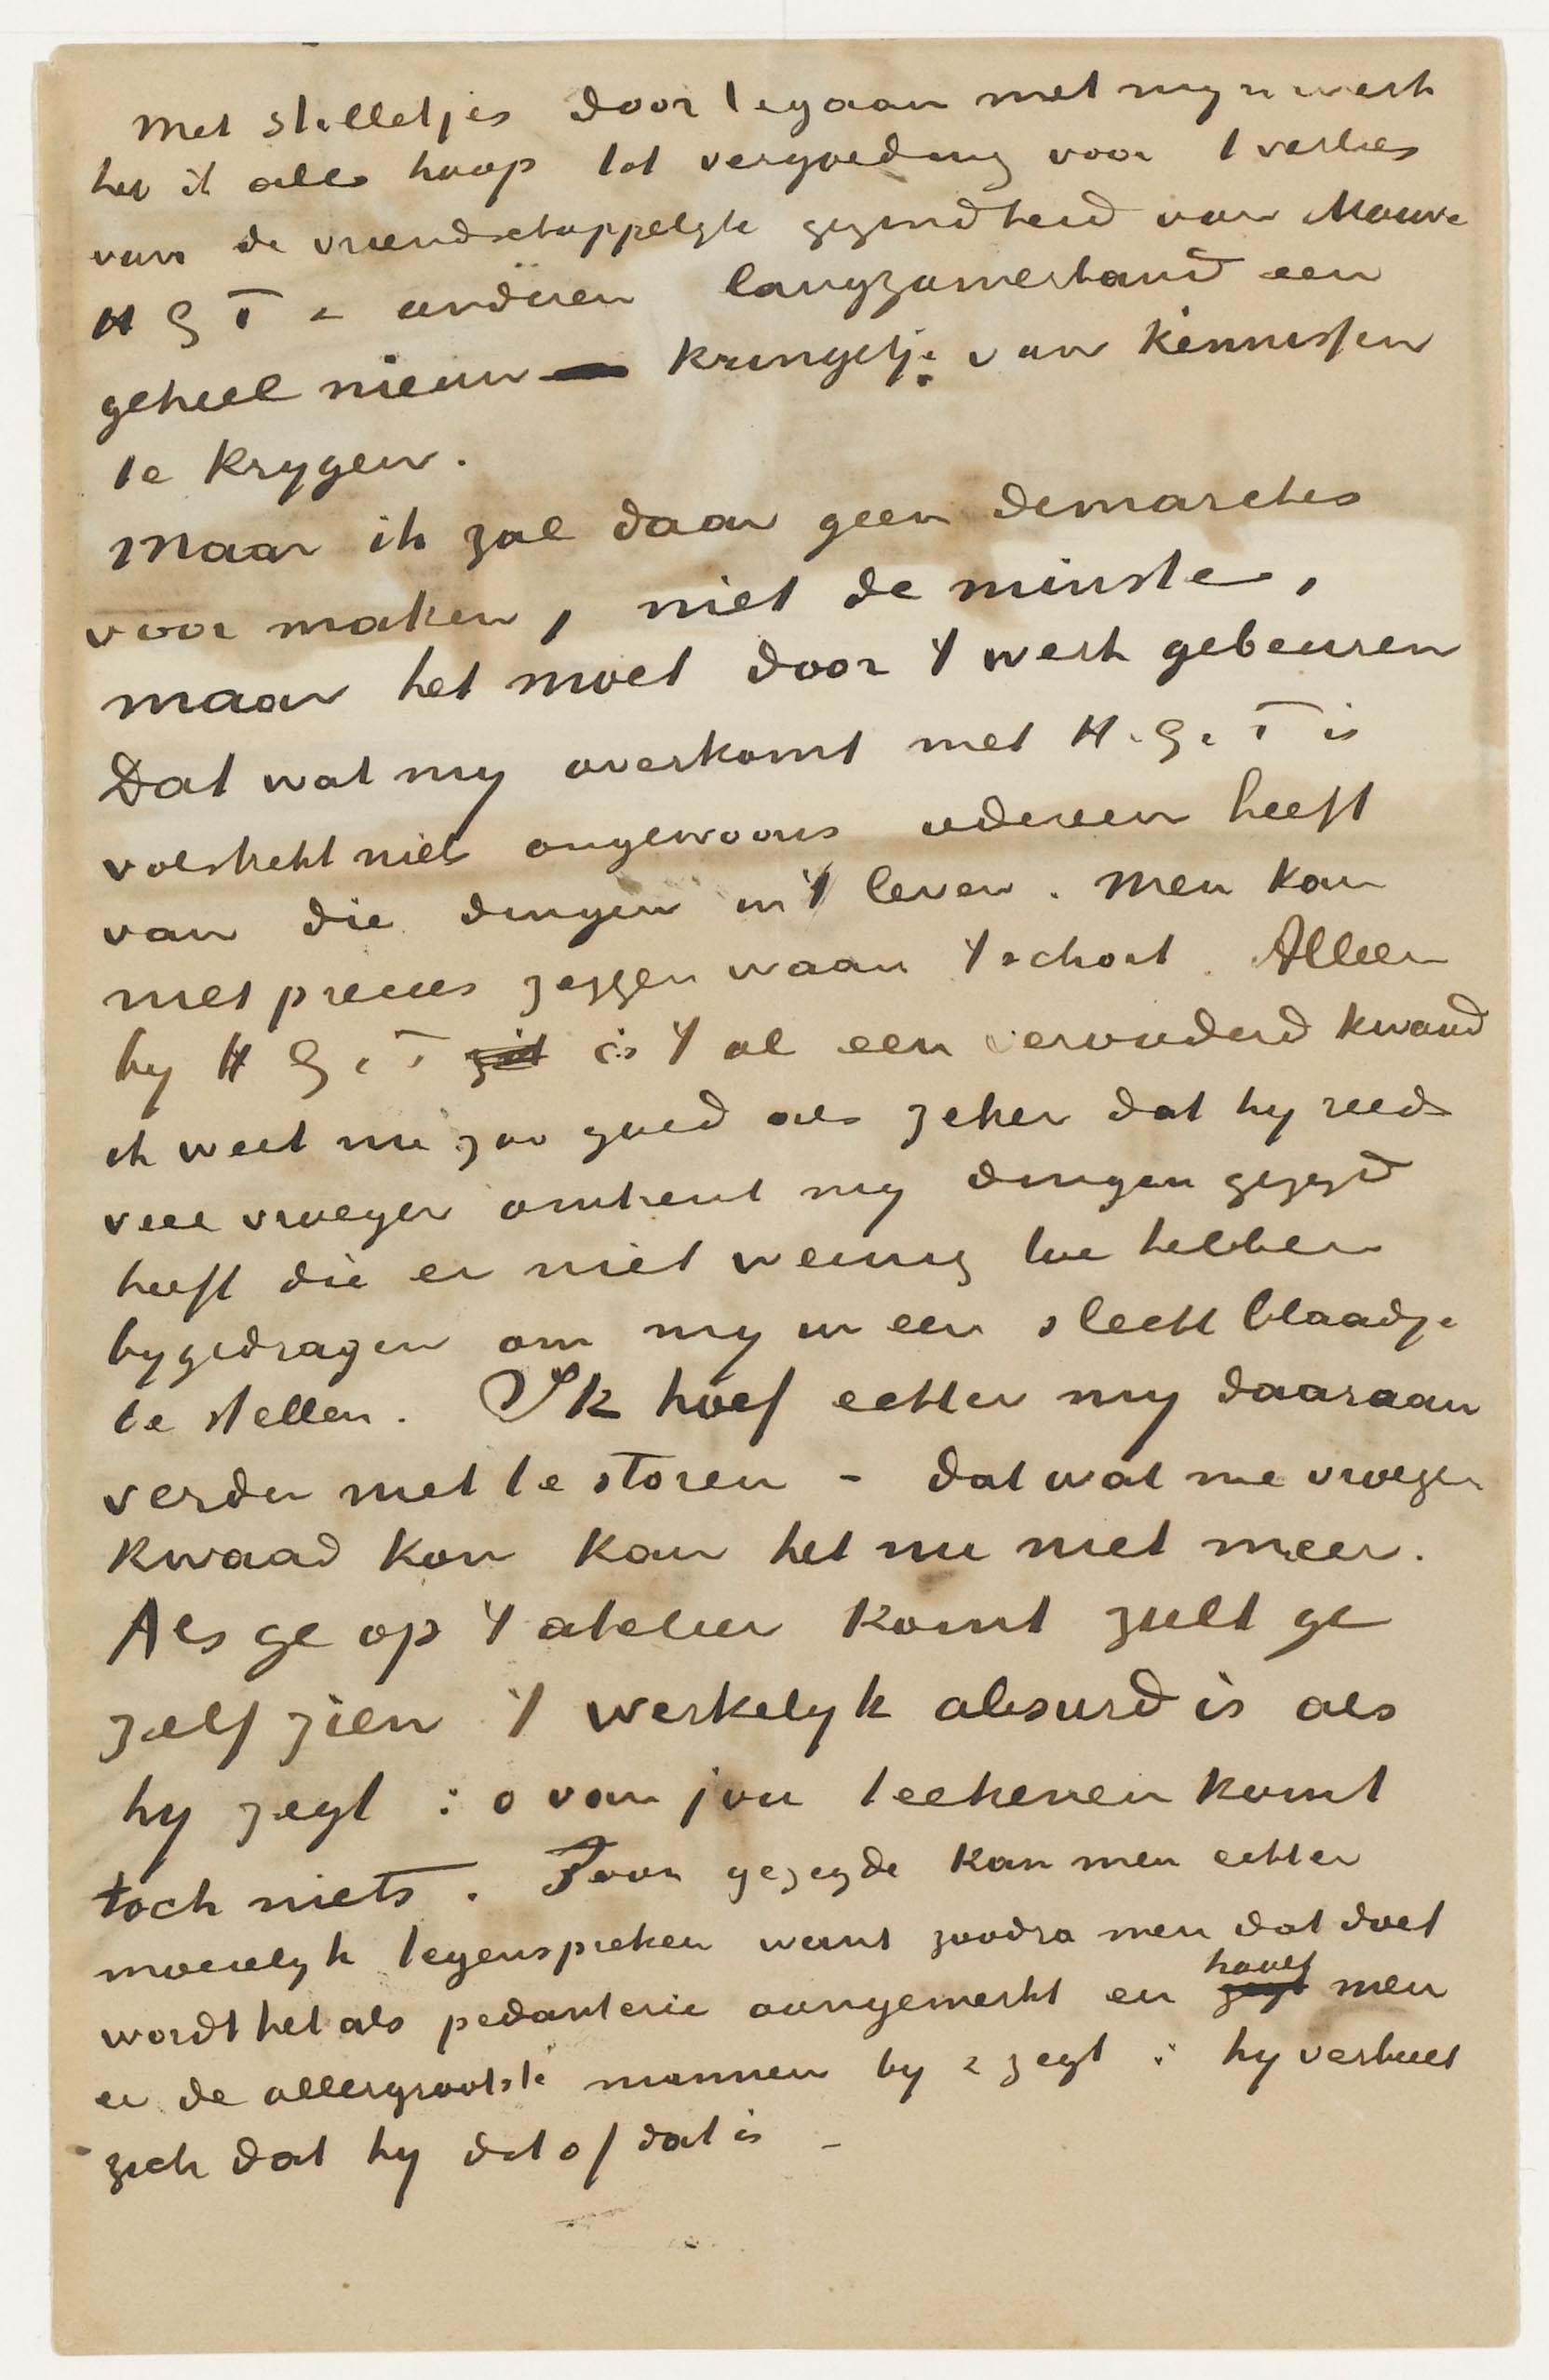 Met stilletjes door te gaan met myn werk
heb ik alle hoop tot vergoeding voor 't verlies
van de vriendschappelyke gezindheid van Mauve
H G T & anderen langzamerhand een
geheel nieuw kringetje van kennissen
te krygen.
Maar ik zal daar geen demarches
voor maken, niet de minste,
maar het moet door 't werk gebeuren
Dat wat my overkomt met H. G. T is
volstrekt niets ongewoons iedereen heeft
van die dingen in 't leven. Men kan
niet precies zeggen waar 't schort. Alleen
by H G. T zit is 't al een verouderd kwaad
ik weet nu zoo goed als zeker dat hy reeds
veel vroeger omtrent my dingen gezegd
heeft die er niet weinig toe hebben
bygedragen om my in een slecht blaadje
te stellen. Ik hoef echter my daaraan
verder niet te storen – dat wat me vroeger
kwaad kon kan het nu niet meer.
Als ge op 't atelier komt zult ge
zelf zien 't werkelyk absurd is als
hy zegt : o van jou teekenen komt
toch niets. Zoo'n gezegde kan men echter
moeielyk tegenspreken want zoodra men dat doet
wordt het als pedanterie aangemerkt en haalt men
er de allergrootste mannen by & zegt : hy verbeeldt
zich dat hy dit of dat is –